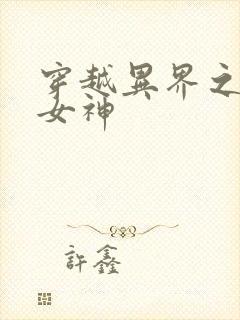 穿越異界之
女神
許鑫